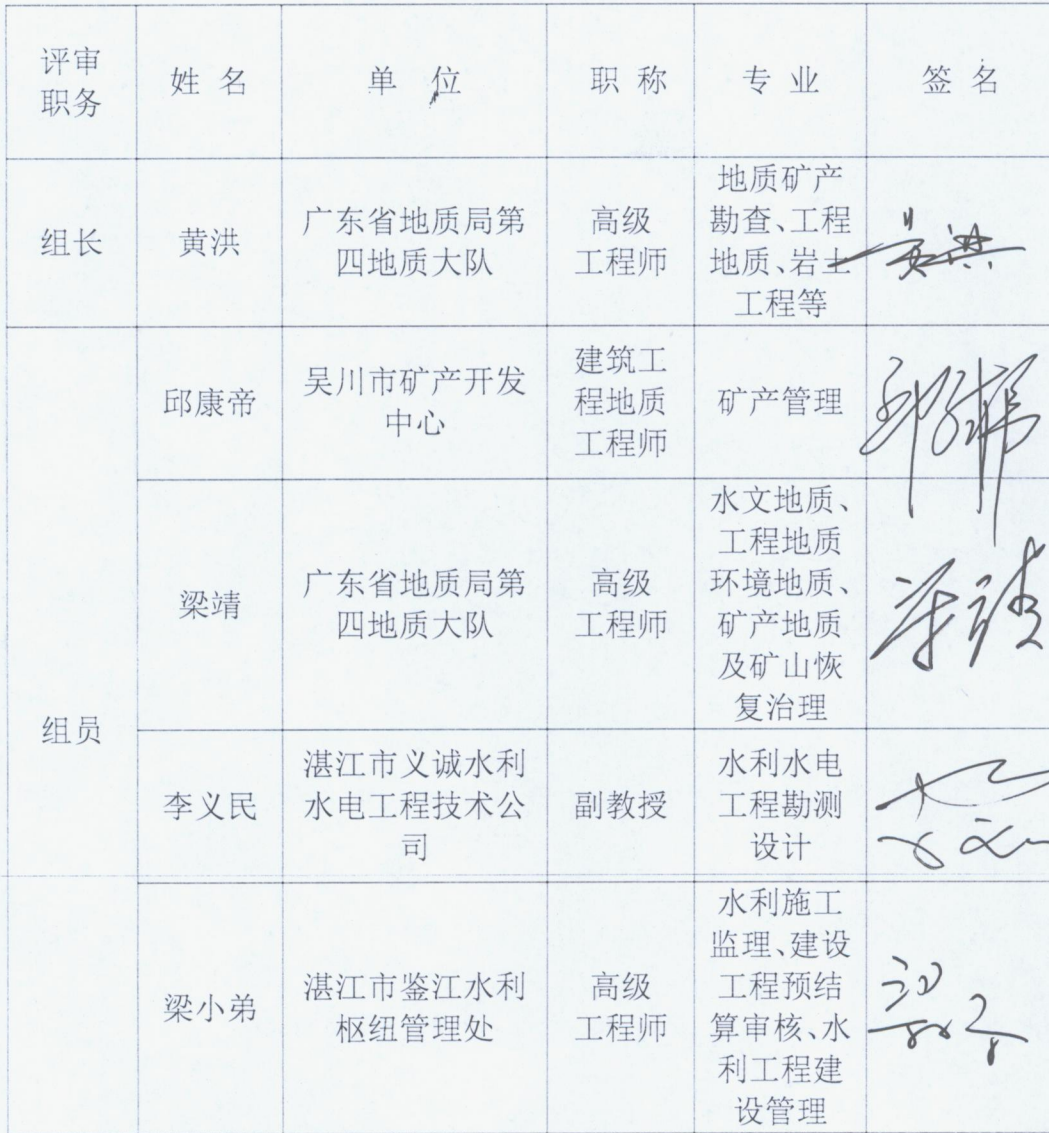 评审
职务
姓 名
单 位
职 称
专 业
签 名
组长
黄洪
广东省地质局第
四地质大队
高级
工程师
地质矿产
勘查、工程
地质、岩土
工程等
黄洪
组员
邱康帝
吴川市矿产开发
中心
建筑工
程地质
工程师
矿产管理
邱康帝
梁靖
广东省地质局第
四地质大队
高级
工程师
水文地质、
工程地质
环境地质、
矿产地质
及矿山恢
复治理
梁靖
李义民
湛江市义诚水利
水电工程技术公
司
副教授
水利水电
工程勘测
设计
梁小弟
湛江市鉴江水利
枢纽管理处
高级
工程师
水利施工
监理、建设
工程预结
算审核、水
利工程建
设管理